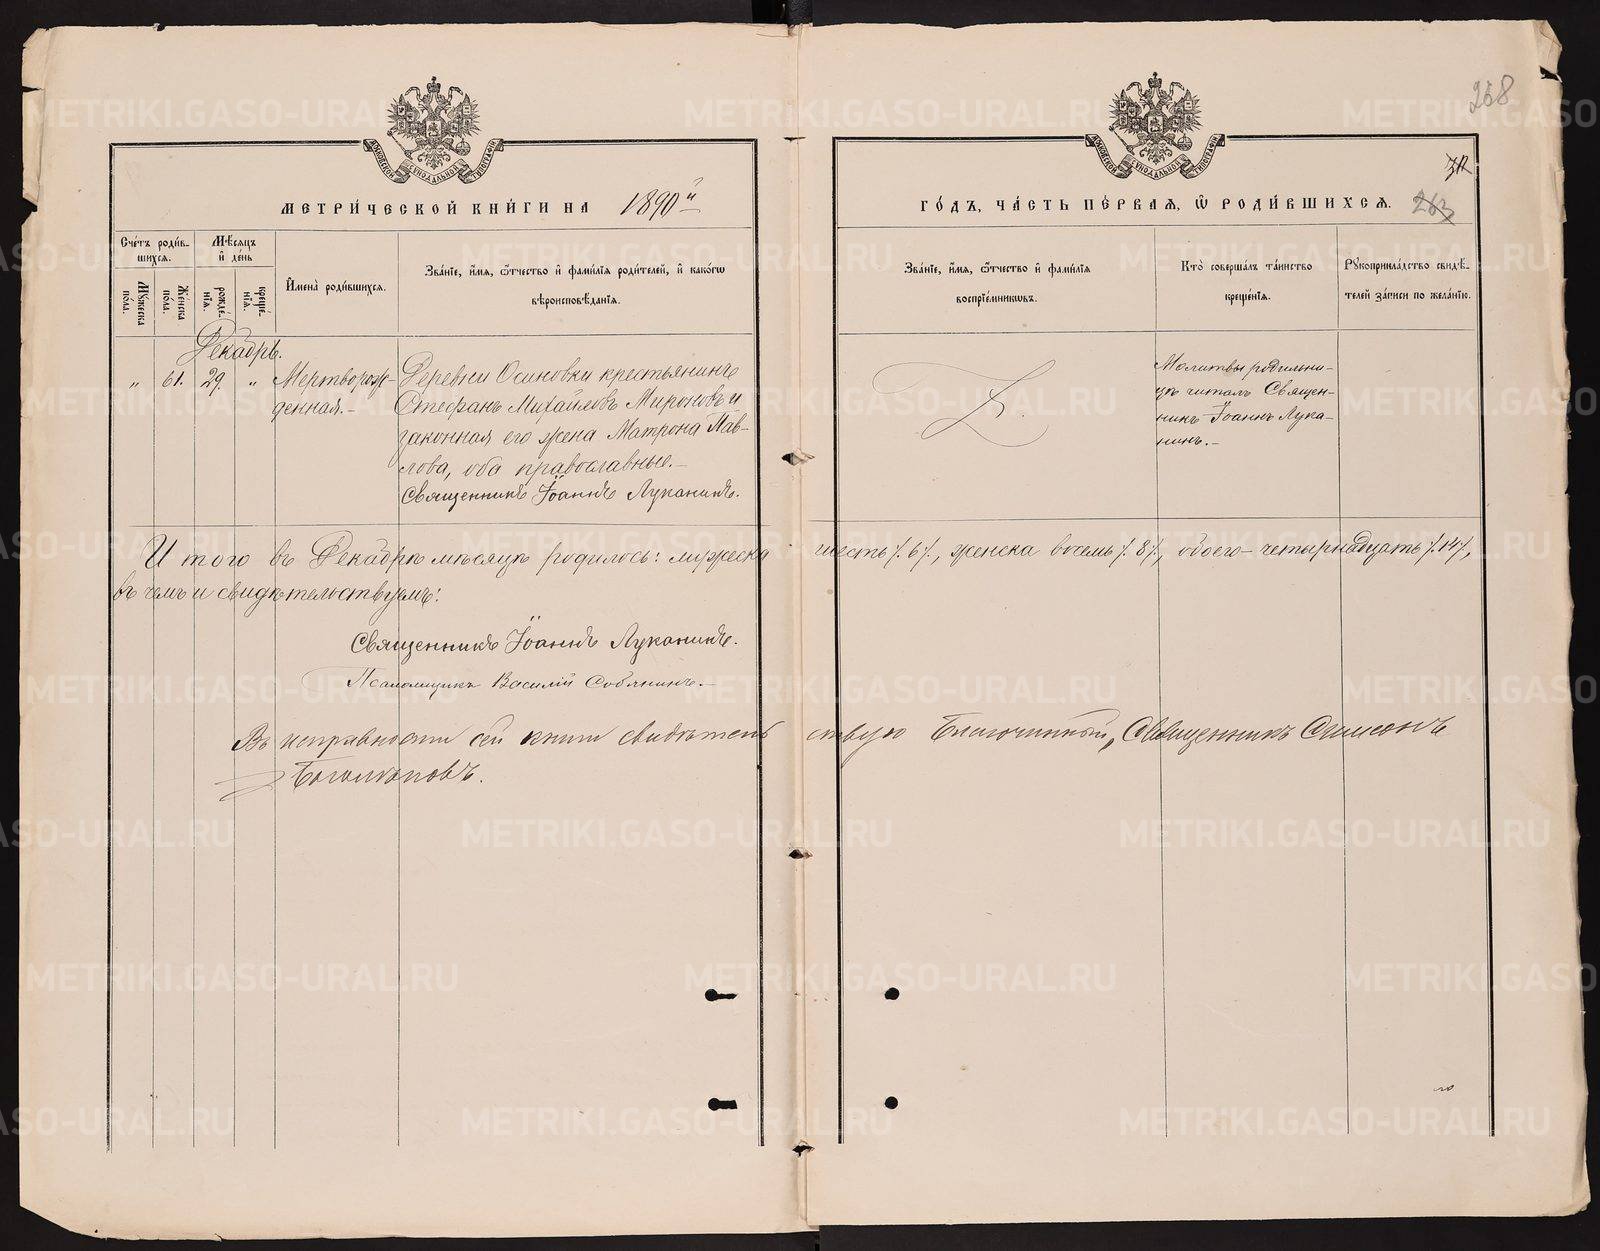 268
МОСКОВСКОЙ СѴНОДАЛЬНОЙ ТИПОГРАФІИ
МОСКОВСКОЙ СѴНОДАЛЬНОЙ ТИПОГРАФІИ
МЕТРИ́ЧЕСКОЙ КНИ́ГИ НА 1890й
ГО́ДЪ, ЧА́СТЬ ПЕ́РВАЯ, Ѿ РОДИ́ВШИХСЯ. 263
Сче́тъ роди́в-
шихся.
Мꙋ́жеска по́ла.
Же́нска по́ла.
Мѣ́сяцъ и҆ де́нь
рожде́-нїя.
креще́-нїя.
И҆мена̀ роди́вшихся.
Зва́нїе, и҆́мя, ѻ҆́тчество и҆ фами́лїя роди́телей, и҆ како́гѡ
вѣроисповѣ́данїя.
Зва́нїе, и҆́мя, ѻ҆́тчество и҆ фами́лїя
воспрїе́мниковъ.
Кто̀ соверша́лъ та́инство
креще́нїя.
Рꙋкоприкла́дство свидѣ́-
телей за́писи по жела́нїю.
Декабрь.
„ 61. 29. „ Мертворож-
денная.-
Деревни Осиновки крестьянинъ
Стефанъ Михайловъ Мироновъ и
законная его жена Матрона Пав-
лова, оба православные.-
Священникъ Іоаннъ Луканинъ.
Молитвы родильни-
цѣ читалъ Священ-
никъ Іоаннъ Лука-
нинъ.-
Итого въ Декабрѣ мѣсяцѣ родилось: мужеска шесть /.6/., женска восемь /.8/., обоего- четырнадцать /.14/.,
въ чемъ и свидѣтельствуемъ:
Священникъ Іоаннъ Луканинъ.
Псаломщикъ Василій Собянинъ.-
Въ исправности сей книги свидѣтельствую Благочинный, Священникъ Симеонъ
Богомоловъ.
METRIKI.GASO-URAL.RU